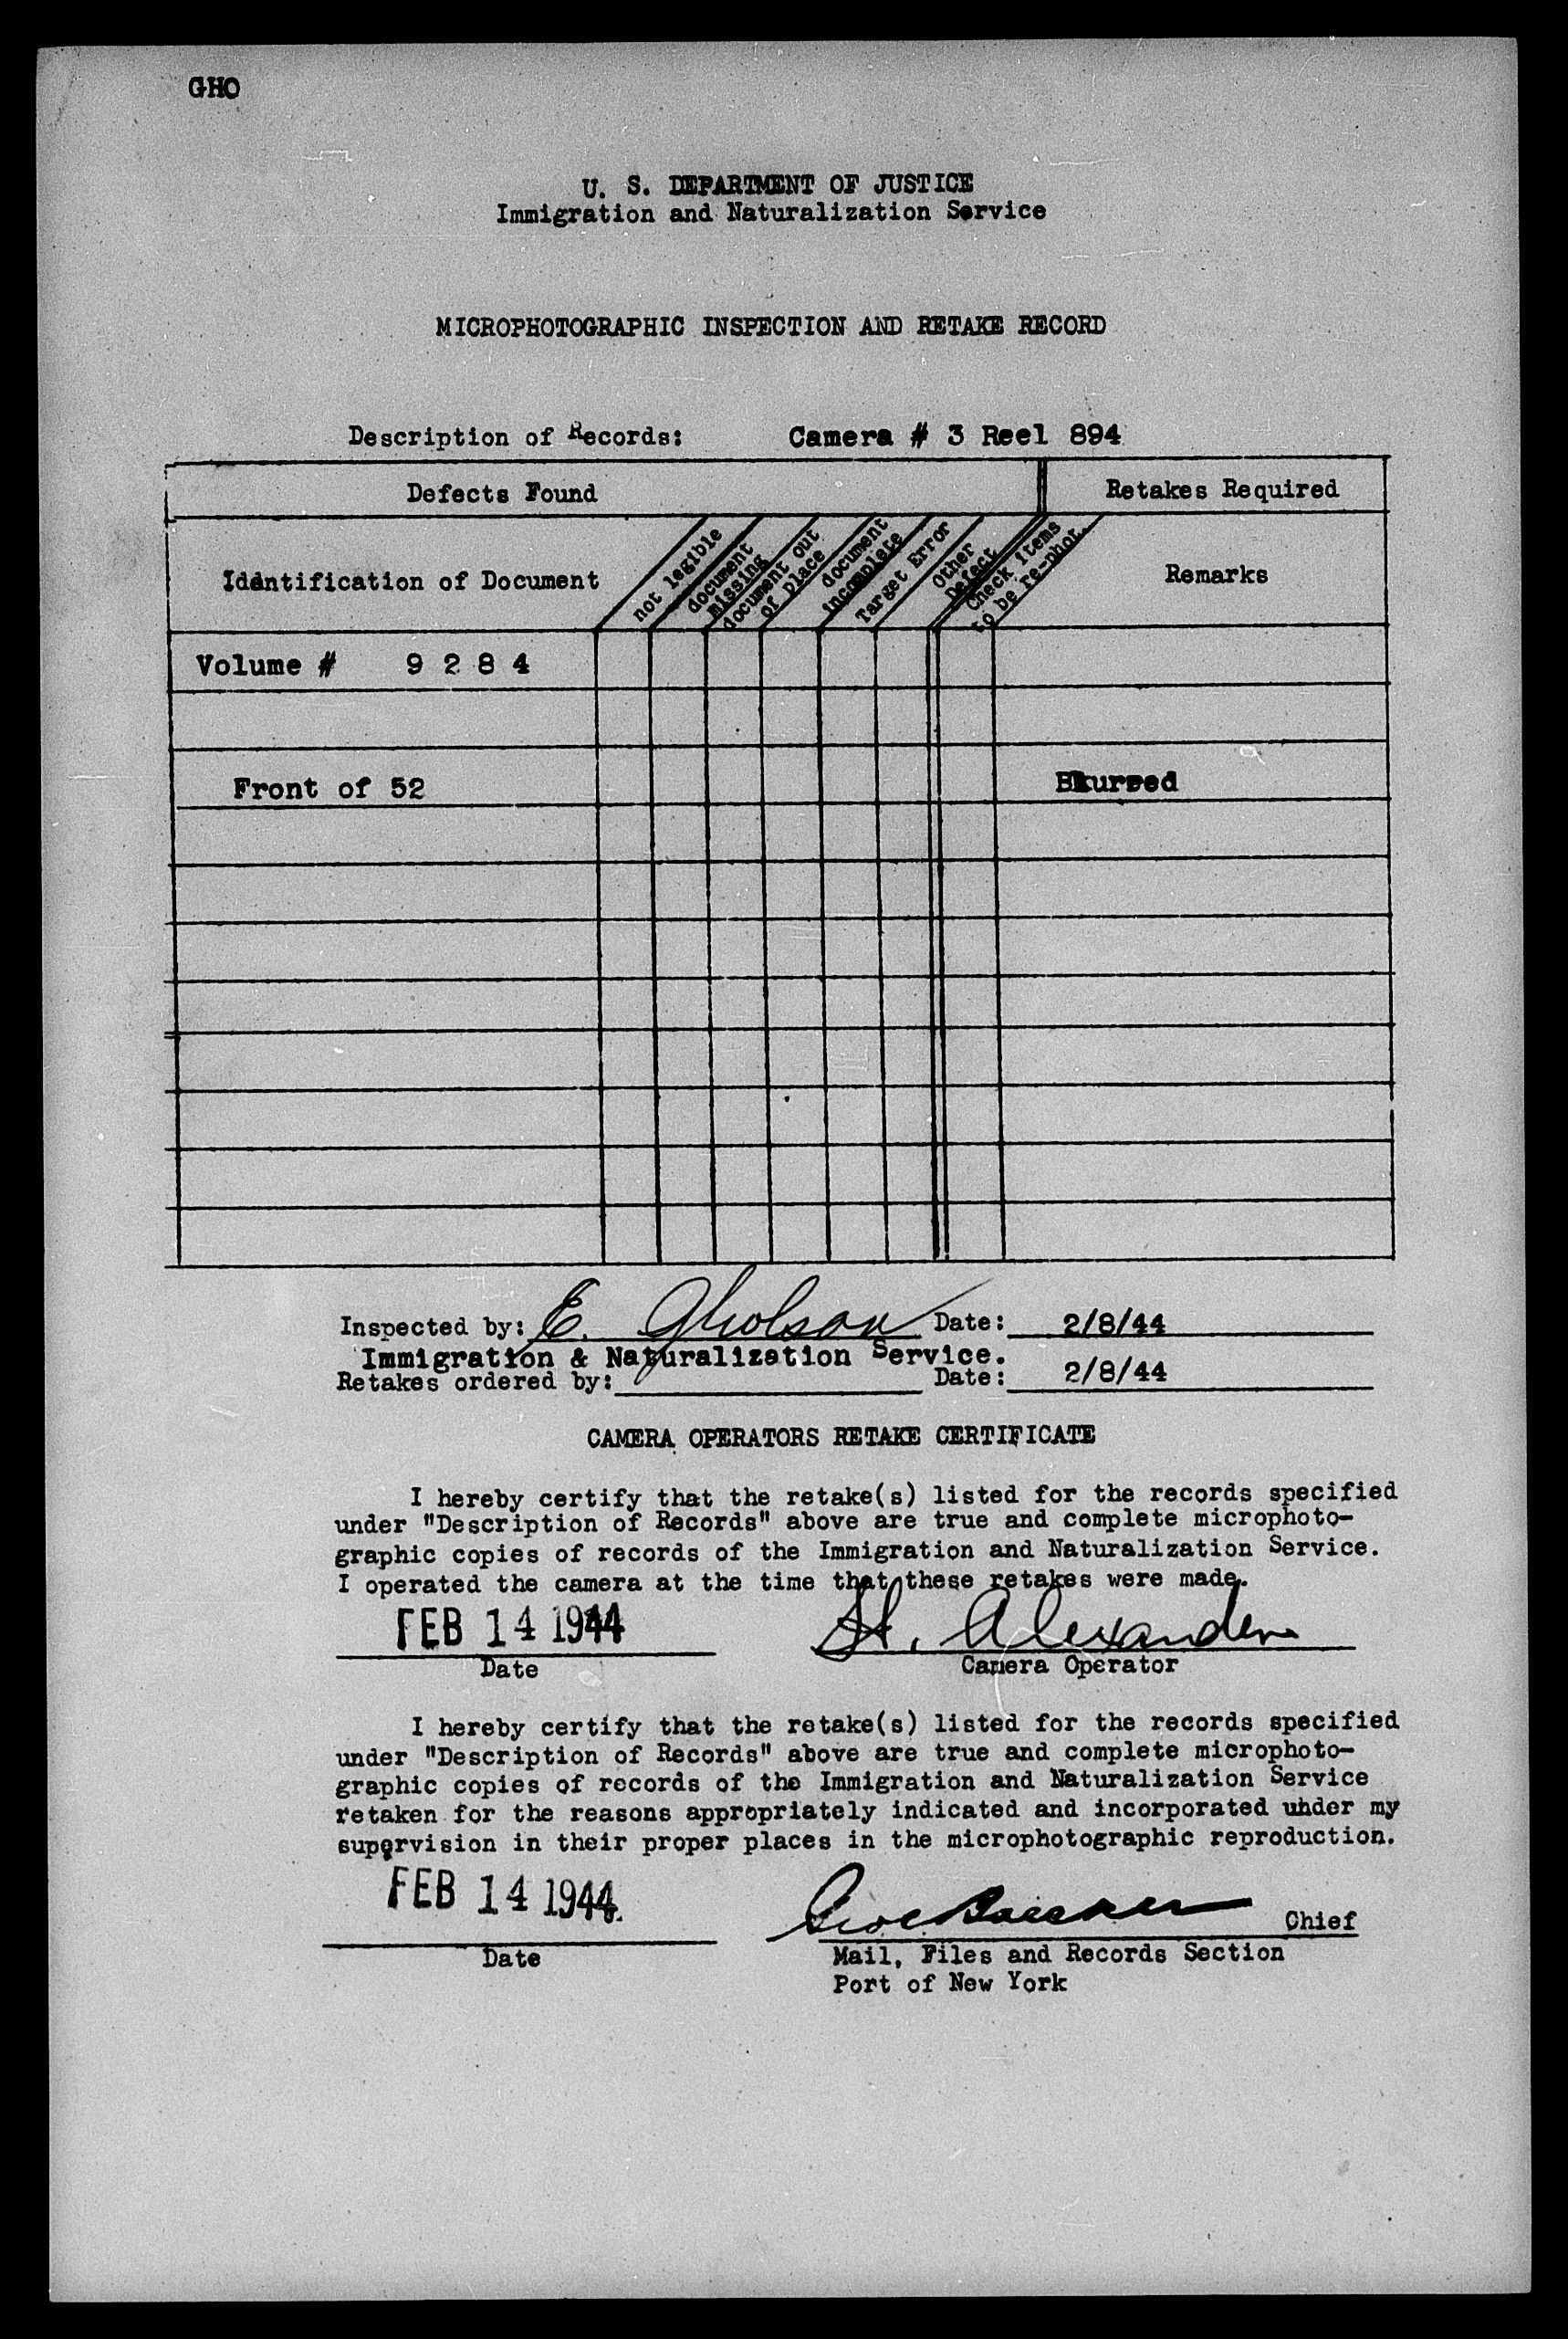 GHO
U. S. DEPARTMENT OF JUSTICE
Immigration and Naturalization Service
MICROPHOTOGRAPHIC INSPECTION AND RETAKE RECORD
Description of Records: Camera # 3 Reel 894
Defects Found Retakes Required
Identification of Document
not legible
document
missing
document out
of place
document
incomplete
Target Error
Other
Defect
Check items
to be re-phot.
Remarks
Volume # 9 2 8 4
Front of 52 Blurred
Inspected by: E. Gholson Date: 2/8/44
Immigration & Naturalization Service.
Retakes ordered by: Date: 2/8/44
CAMERA OPERATORS RETAKE CERTIFICATE
I hereby certify that the retake(s) listed for the records specified
under "Description of Records" above are true and complete microphoto-
graphic copies of records of the Immigration and Naturalization Service.
I operated the camera at the time that these retakes were made.
FEB 14 1944 Alexander
Date Camera Operator
I hereby certify that the retake(s) listed for the records specified
under "Description of Records" above are true and complete microphoto-
graphic copies of records of the Immigration and Naturalization Service
retaken for the reasons appropriately indicated and incorporated under my
supervision in their proper places in the microphotographic reproduction.
FEB 14 1944
Chief
Date Mail, Files and Records Section
Port of New York